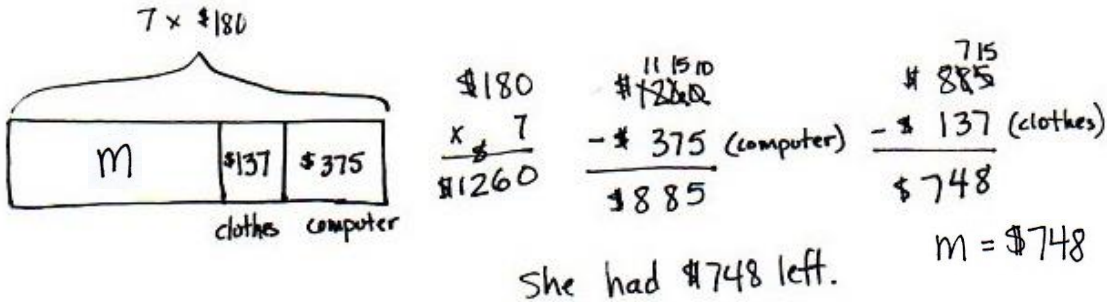 7 x $180
m $137 $375
clothes computer
$180
x 7
5
$1260
11 15 10
$1260
- $ 375 (computer)
$885
7 15
$ 885
- $ 137 (clothes)
$748
m = $748
She had $748 left.